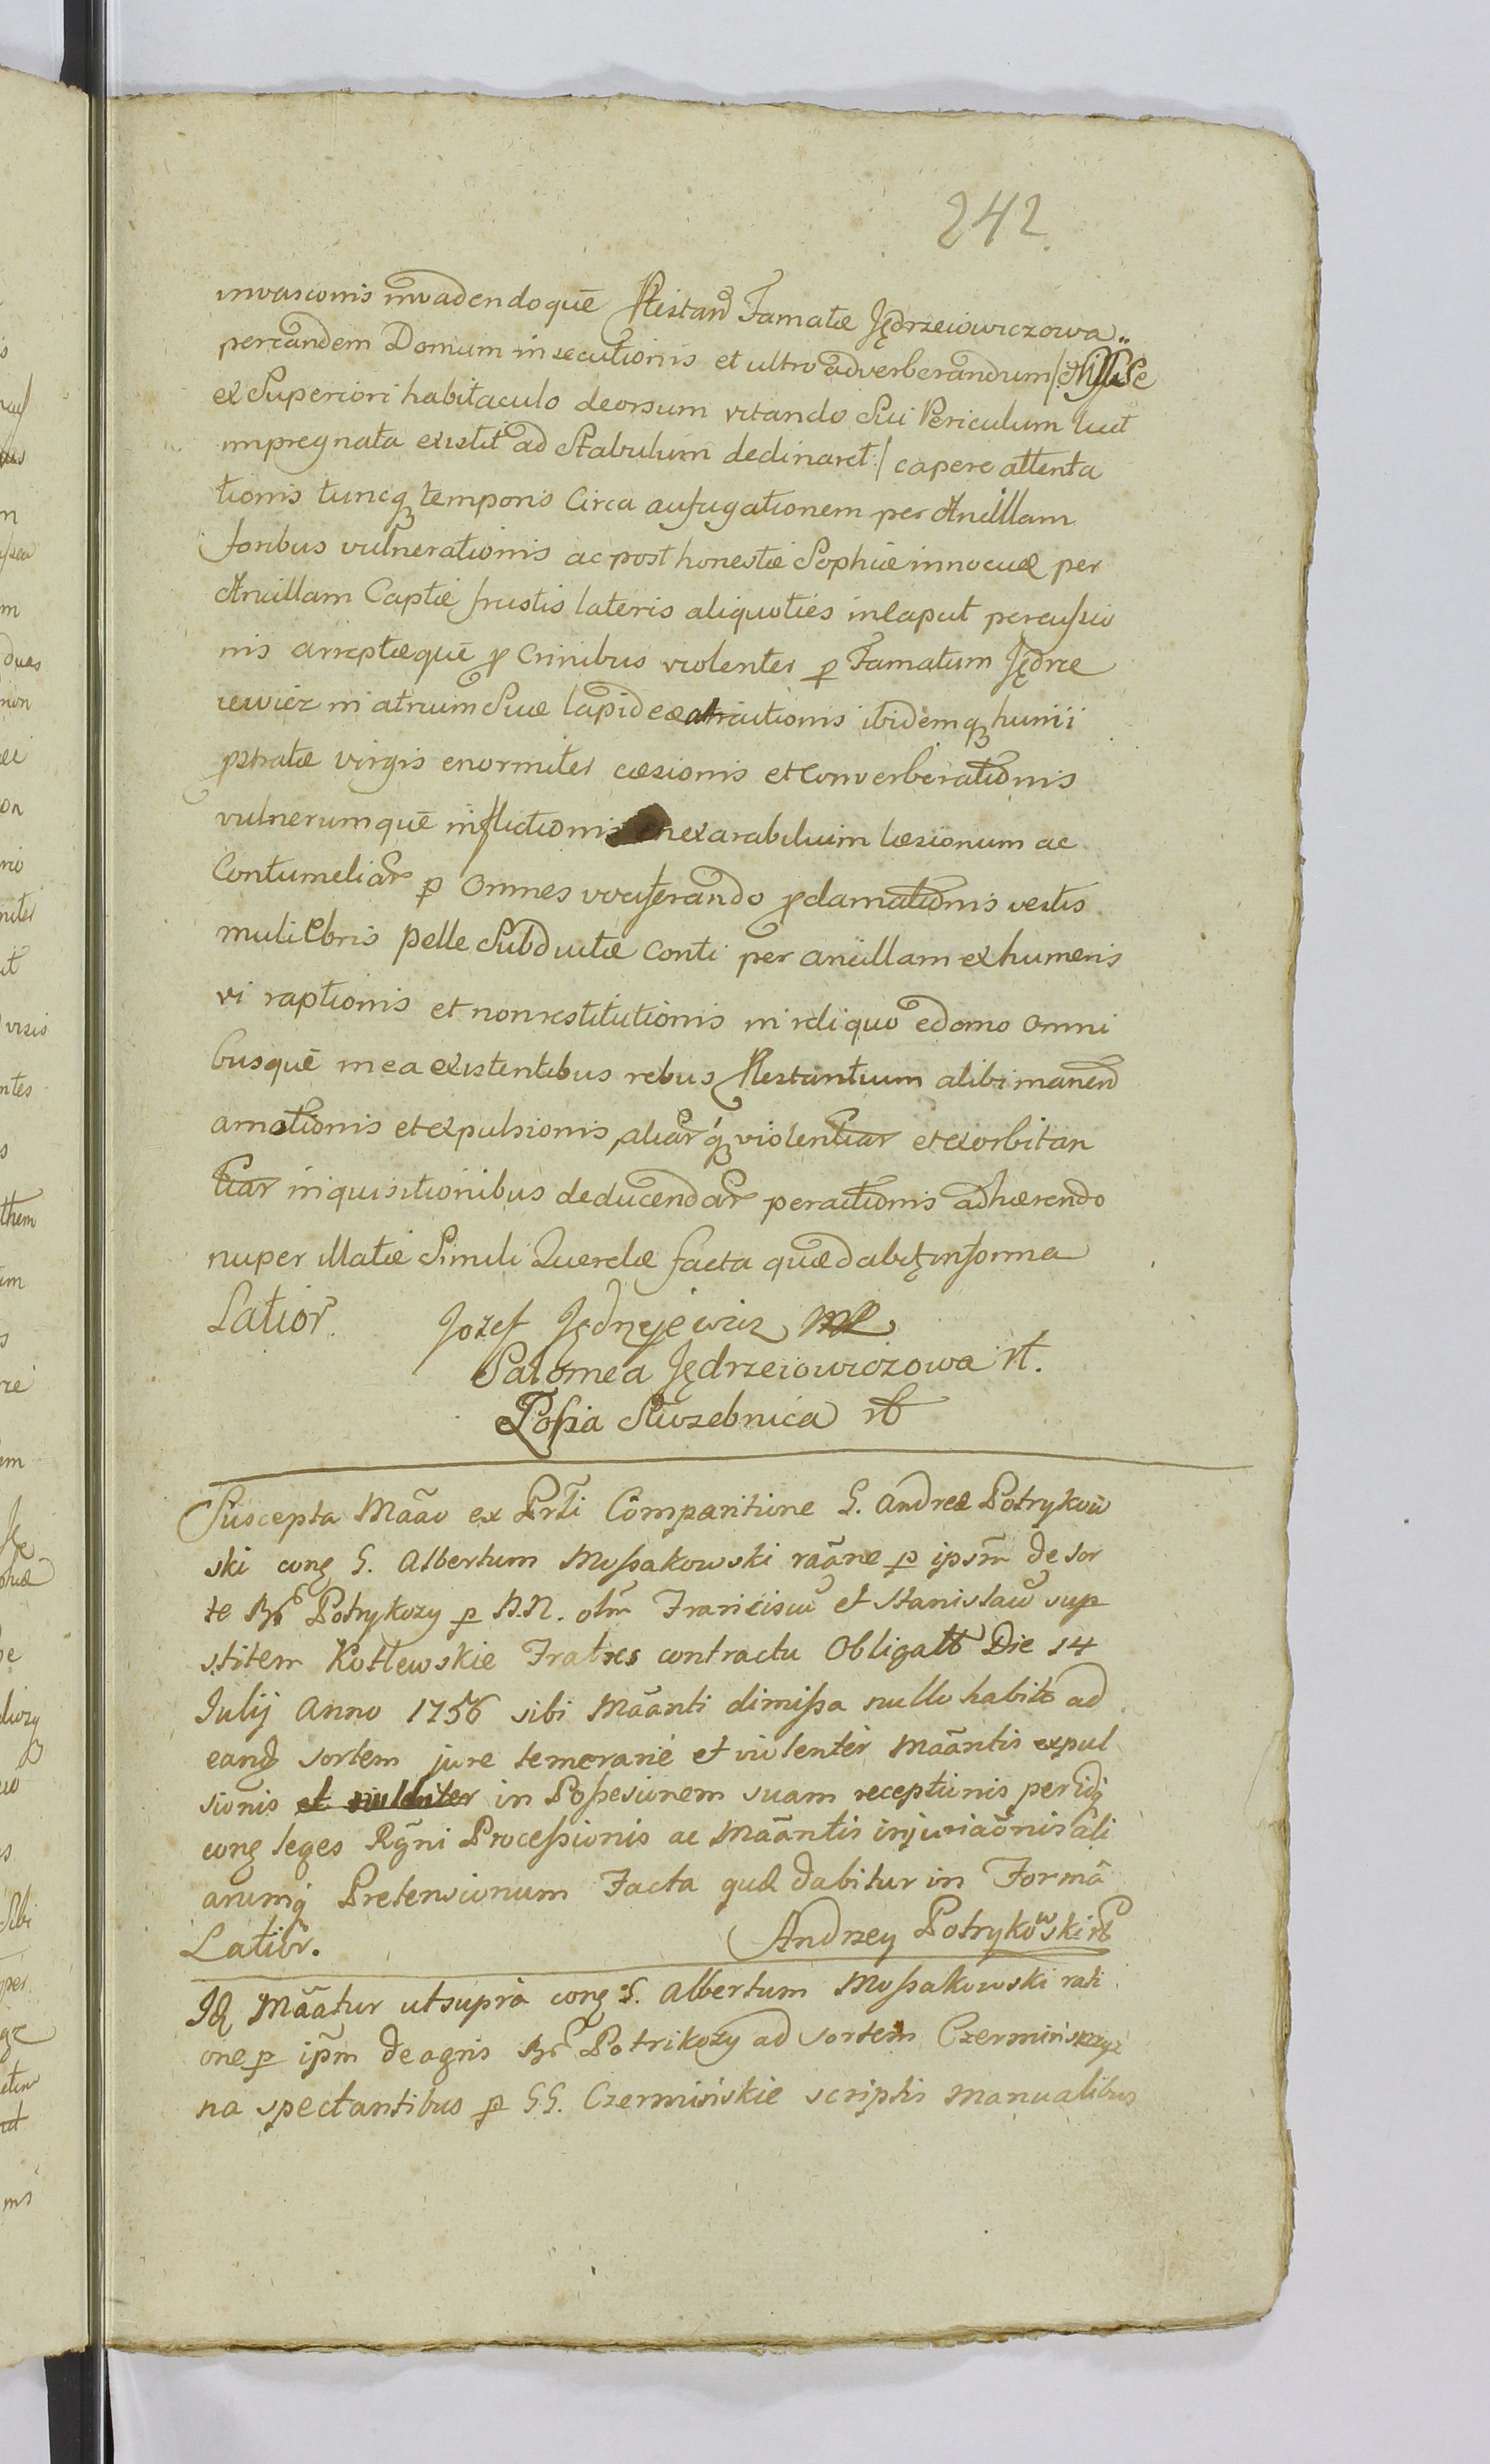 242.
invasionis invadendoquē Ptestand Famatæ Jędrzeiowiczowa..
pereandem Domum insecutionis et ultro adverberandum /: Nisi Se
ex Superiori habitaculo deorsum vitando Sui Periculum luct
impregnata existit ad Stabulum declinaret :/ capere attenta
tionis tuncq temporis Circa aufugationem per Ancillam
foribus vulnerationis ac post honestæ Sophiæ innocuæ per
Ancillam Captæ frustis lateris aliquoties in Caput percussio
nis arreptæquē p Crinibus violenter p Famatum Jędrze
iewicz in atrium Suæ lapideæ attractionis ibidemq humi
pstratæ virgis enormiter cæsionis et Converberationis
vulnerumquē inflictionis enexarabilium læsionum ac
Contumeliar p Omnes vociferando pclamationis vestis
muliebris pelle Subductæ Conti per ancillam ex humeris
vi raptionis et nonrestitutionis in reliquo e domo Omni
busquē in ea existentibus rebus Ptestantium alibi manend
amotionis et expulsionis, aliarq violentiar et exorbitan
tiar inquisitionibus deducendar peractionis adhærendo
nuper illatæ Simili Querelæ facta quæ dabitr in forma
Latior.
Jozef Jędrzejewicz mp
Salomea Jędrzeiowiczowa rt.
Zosia Słuzebnica rt
Suscepta Mãao ex Prti Comparitione G. Andreæ Potrykow
ski cong G. Albertum Mossakowski raãne p ipsm de sor
te Br Potrykozy p N.N. olm Franciscu et Stanislau sup
stitem Kotlewskie Fratres contractu Obligatto Die 14
Julij Anno 1756 sibi Mãanti dimissa nullo habito ad
eand sortem jure temerarie et violenter Mãantis expul
sionis et violenter in Possesionem suam receptionis peridq
cong leges Rgni Processionis ac Mãantis injuriaõnis ali
arumq Pretensionum Facta quæ dabitur in Formã
Latior.
Andrzey Potrykowski rt
Id Mãatur ut supra cong G. Albertum Mossakowski rati
one p ipm de agris Br Potrikozy ad sortem
na spectantibus p GG. Czermińskie scriptis manualibus